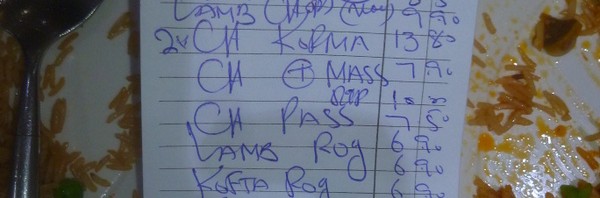 LAMB 9 90
2x CH KORMA 13 80
CH + MASS 7 90
CH PASS 7 50
LAMB Rog 6 90
KOFTA Rog 6 90